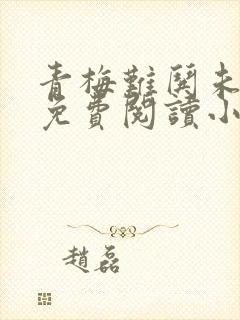 青梅難関未
免費閱讀小
趙磊